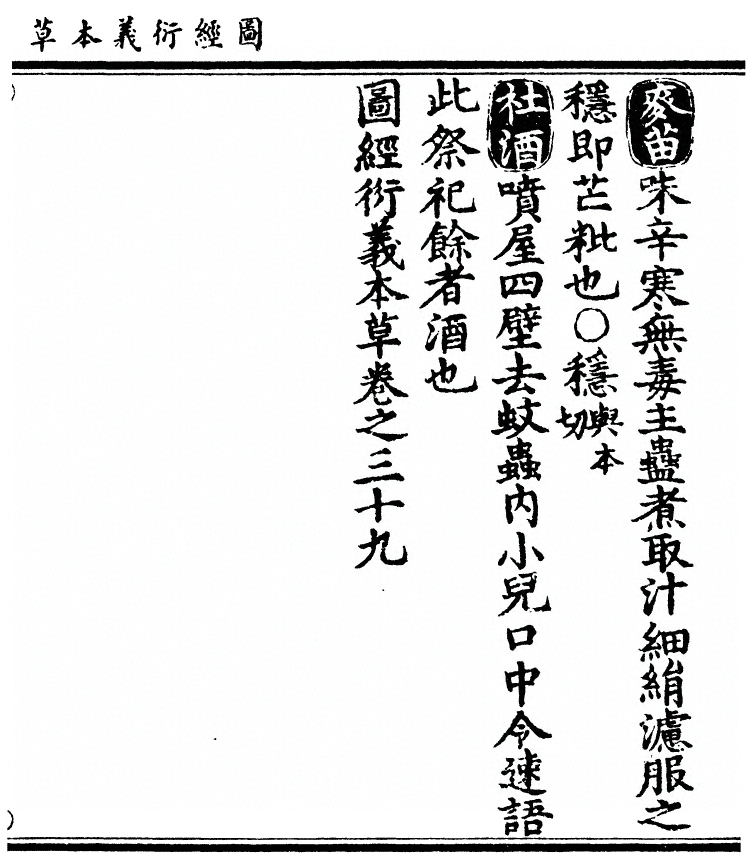 圖經衍義本草
麥苗味辛寒無毒主蠱煮取汁細絹濾服之
穩即芒粃也〇穩與本切
社酒噴屋四壁去蚊蟲內小兒口中令速語
此祭祀餘者酒也
圖經衍義本草卷之三十九